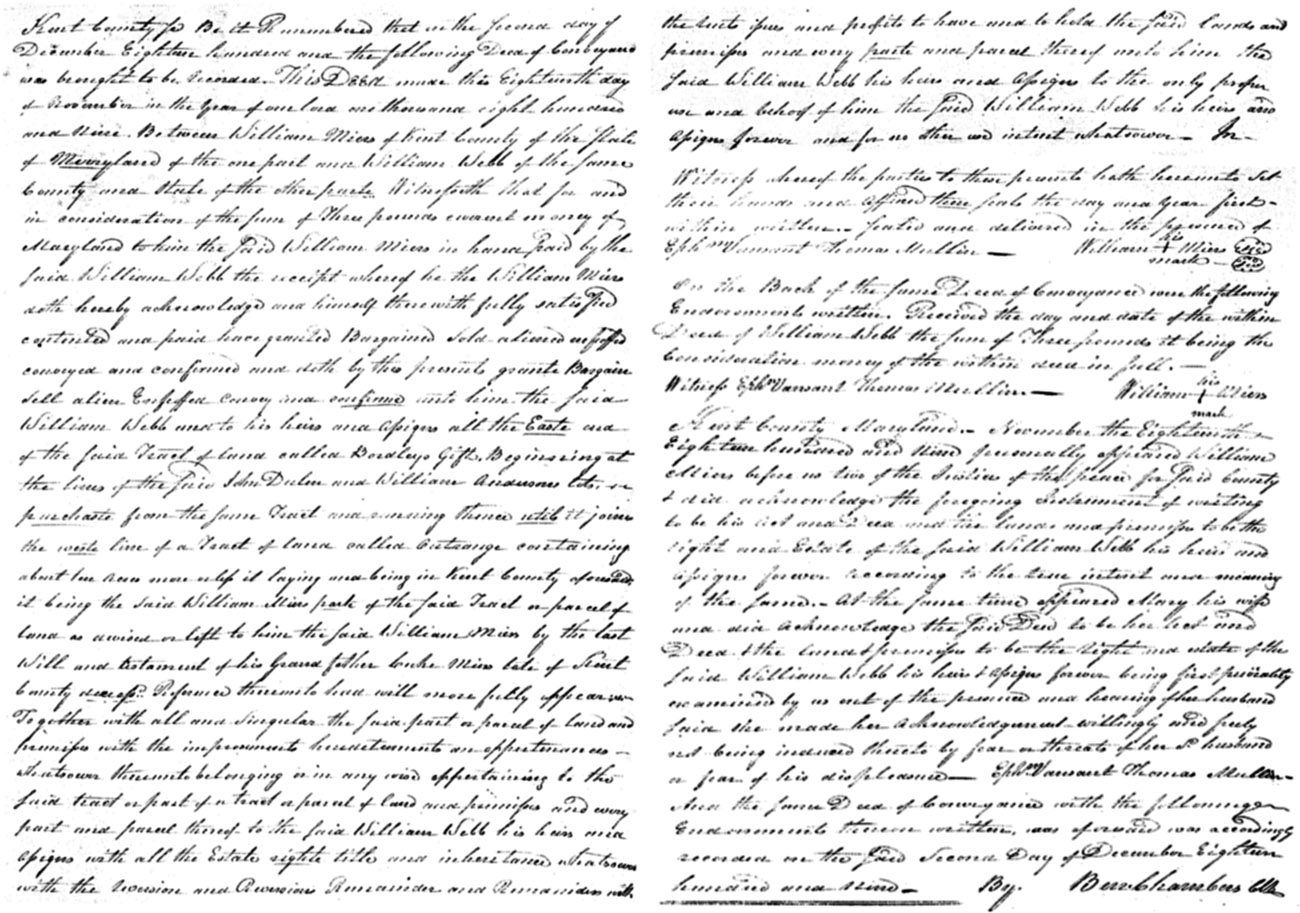 Kent County ss Be it Remembered that on the second day of
December Eighteen hundred and the following Deed of Conveyance
was brought to be recorded. This Deed made this Eighteenth day
of November in the Year of our lord one thousand eight hundred
and Nine. Between William Miers of Kent County of the State
of Merryland of the one part and William Webb of the same
County and State of the other parte Witnesseth that for and
in consideration of the sum of Three pounds current money of
Maryland to him the said William Miers in hand paid by the
said William Webb the receipt whereof he the William Miers
doth hereby acknowledge and himself therewith fully satisfied
contented and paid have granted Bargained Sold aliened enfeoffed
conveyed and confirmed and doth by this presents grante Bargain
Sell alien Enfeoffed convey and confirme unto him the said
William Webb and to his heirs and assigns all the Easte end
of the said Tract of land called Bordleys Gift, Beginning at
the lines of the said John Dulen and William Anderson Lots, or
purchaste from the same Tract and running thence until it joins
the weste line of a Tract of land called containing
about ten acres more or less it laying and being in Kent County aforesaid,
it being the said William Miers park of the said Tract or parcel of
land as devised or left to him the said William Miers by the last
Will and testament of his Grand father Luke Miers late of Kent
County deces'd. Reference thereunto had will more fully appear
Together with all and Singular the said part or parcel of land and
premises with the improvments hereditements an appertinances
Whatsover thereunto belonging or in any wise appertaining to the
said tract or part of a tract or parcel of land and premises and every
part and parcel thereof to the said William Webb his heirs and
assigns with all the Estate righte title and inheritance whatsover
with the reversion and Reversions Remainder and Remainders with
the rents issues and profits to have and to hold the said lands and
premises and every parte and parcel thereof unto him the
said William Webb his heirs and assigns to the only proper
use and behoof of him the said William Webb his heirs and
assigns forever and for no other use intent whatsoever — In
Witness whereof the parties to these presents hath hereunto set
their hands and affixed there seals the day and year first
within written. Sealed and delivered in the presence of
Ephm Vansant Thomas Mullin — William his + Miers seal
mark
On the Back of the same Deed of Conveyance were the following
Endorsements written. Received the day and date of the within
Deed of William Webb the sum of Three pounds it being the
Consideration money of the within deed in full. —
Witness Ephm Vansant Thomas Mullin — William his + Miers
mark
Kent County Maryland. November the Eighteenth
Eighteen hundred and Nine personally appeared William
Miers before us two of the Justices of the peace for said County
& did acknowledge the foregoing Instrument of writing
to be his act and Deed and the lands and premises to be the
right and Estate of the said William Webb his heirs and
assigns forever according to the true intent and meaning
of the same. At the same time appeared Mary his wife
and did acknowledge the said Deed to be her act and
Deed & the land & premises to be the right and estate of the
said William Webb his heirs & assigns forever being first privately
examined by us out of the presence and hearing of her husband
said she made her acknowledgment willingly and freely
not being induced thereto by fear or threats of her sd husband
or fear of his displeasure — Ephm Vansant Thomas Mullin
And the same Deed of Conveyance with the following
Endorsments thereon written, was aforesaid was accordingly
recorded on the said Second Day of December Eighteen
hundred and nine — By Benn Chambers Clk